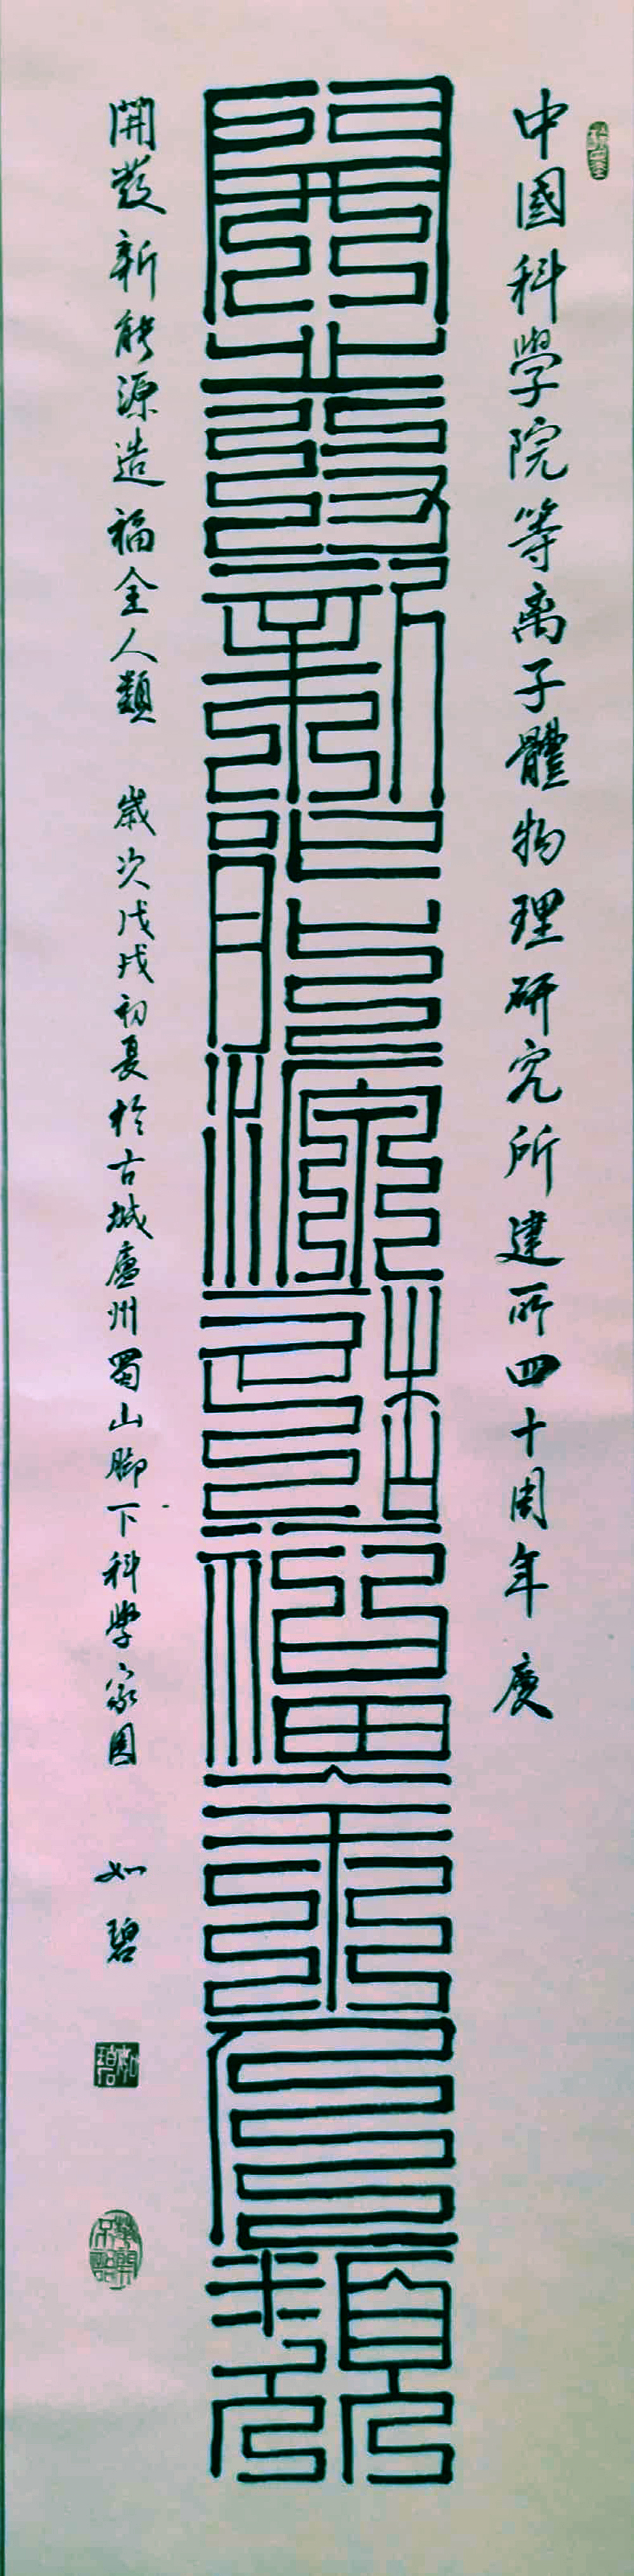 中國科學院等离子體物理研究所建所四十周年慶
開發新能源造福全人類
開發新能源造福全人類 歲次戊戌初夏於古城廬州蜀山脚下科學家園 如碧
如碧